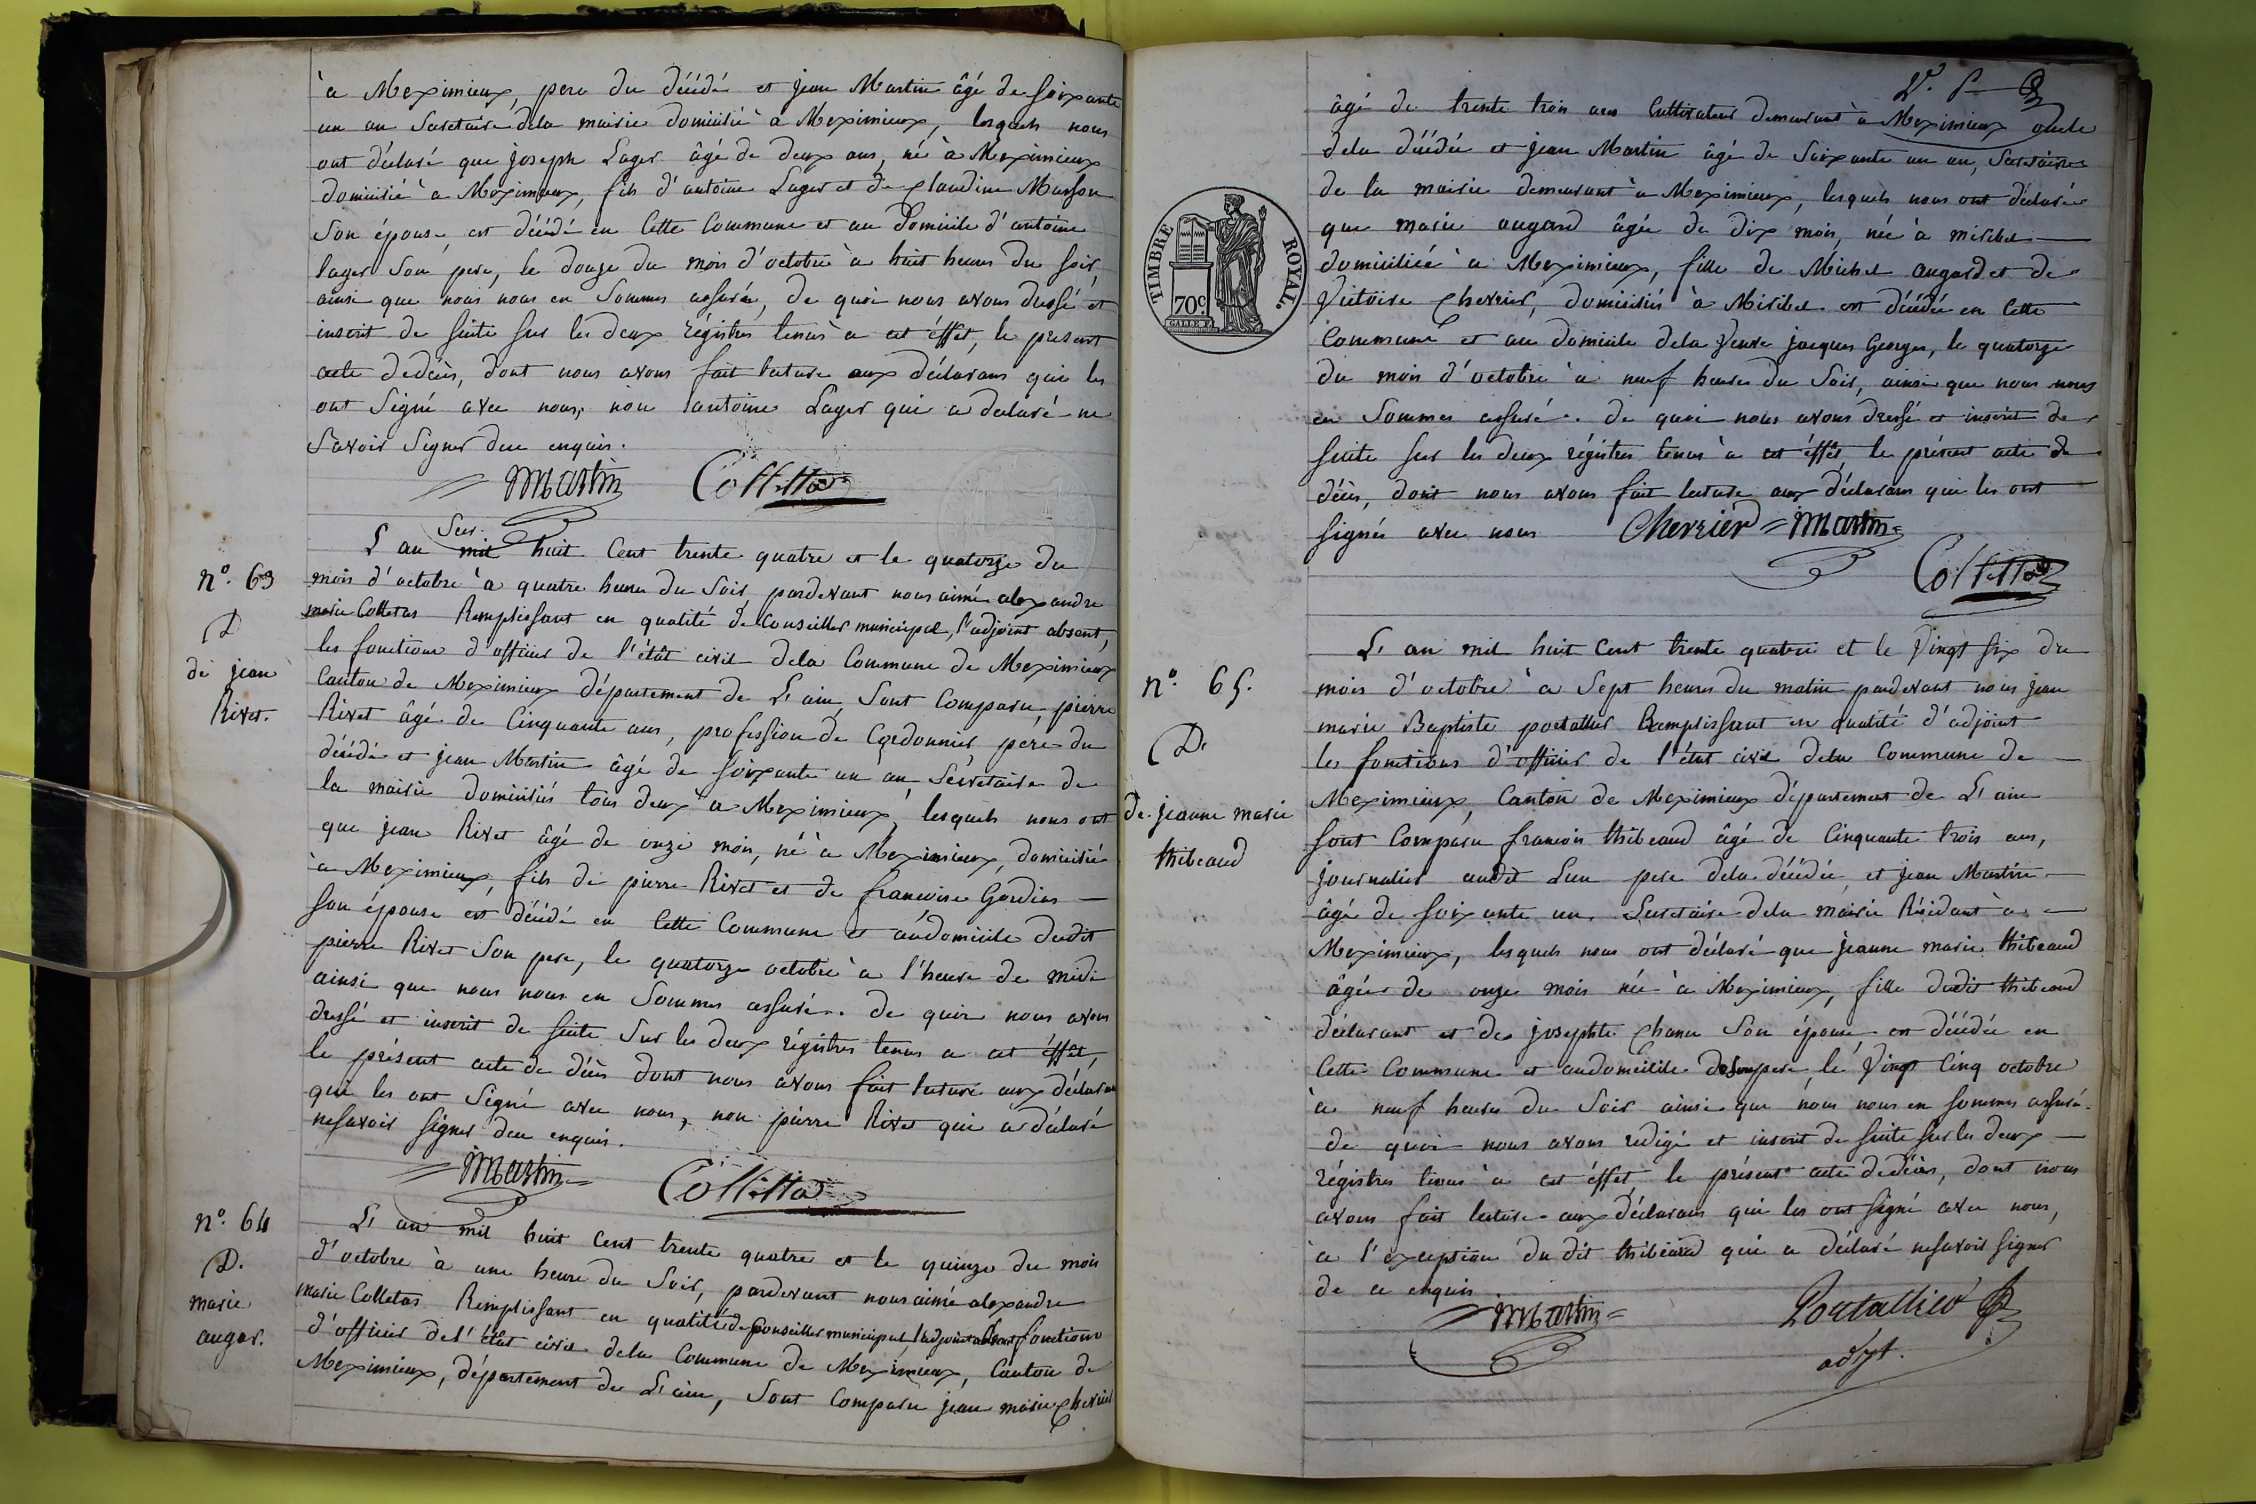 à Meximieux, pere du décédé et jean Martin âgé de soixante
un an Secretaire dela mairie domicilié à Meximieux, lesquels nous
ont déclaré que joseph Lager âgé de deux ans, né à Meximieux
domicilié à Meximieux, fils d'antoine Lager et de Claudine Masson
son épouse, est décédé en cette commune et au domicile d'antoine
lager son pere, le douze du mois d'octobre à huit heures du soir,
ainsi que nous nous en sommes assuré, de quoi nous avons dressé et
inscrit de suite sur les deux régistres tenus à cet éffet, le présent
acte dedécès, dont nous avons fait lecture aux déclarans qui les
ont signé avec nous, non antoine Lager qui a déclaré ne
savoir signer dece enquis.
Martin Colletta
nº. 63
D
de jean
Rivet.
Sur
L'an mil huit cent trente quatre et le quatorze du
mois d'octobre à quatre heures du soir, pardevant nous aimé alexandre
marie Colletas Remplissant en qualité de Conseiller municipal, l'adjoint absent,
les fonctions d'officier de l'état civil dela Commune de Meximieux
Canton de Meximieux département de L'ain, sont comparu, pierre
Rivet âgé de cinquante ans, profession de Cordonnier pere du
décédé et jean Martin âgé de soixante un an, Sécretaire de
la mairie domiciliés tous deux à Meximieux, lesquels nous ont
que jean Rivet âgé de onze mois, né à Meximieux, domicilié
à Meximieux, fils de pierre Rivet et de francoise Gordias
son épouse est décédé en cette commune et audomicile dudit
pierre Rivet son pere, le quatorze octobre à l'heure de midi
ainsi que nous nous en sommes assuré. de quoi nous avons
dressé et inscrit de suite sur les deux régistres tenus à cet éffet,
le présent acte de décès dont nous avons fait lecture aux déclarans
qui les ont signé avec nous, non pierre Rivet qui a déclaré
nesavoir signer dece enquis.
Martin Colletta
nº. 64
D.
marie
augar.
L'an mil huit cent trente quatre et le quinze du mois
d'octobre à une heure du soir, pardevant nous aimé alexandre
marie Colletas Remplissant en qualité de Conseiller municipal l'adjoint absent fonctions
d'officier del'état civil dela Commune de Meximieux, Canton de
Meximieux, département de L'ain, sont comparu jean marie Chevrier
âgé de trente trois ans cultivateur demeurant à Meximieux oncle
dela décédée et jean Martin âgé de soixante un an, Sécretaire
de la mairie demeurant à Meximieux, lesquels nous ont déclaré
que marie augard âgée de dix mois, née à miribel
domiciliée à Meximieux, fille de Michel augard et de
Victoire Chevrier, domiciliés à Miribel est décédée en cette
commune et au domicile dela Veuve jacques Georges, le quatorze
du mois d'octobre à neuf heures du soir, ainsi que nous nous
en sommes assuré. de quoi nous avons dressé et inscrit de
suite sur les deux régistres tenus à cet éffet, le présent acte de
décès, dont nous avons fait lecture aux déclarans qui les ont
signés avec nous Chevrier Martin
Colletta
TIMBRE ROYAL.
70c.
nº. 65.
D.
de jeanne marie
thibeaud
L'an mil huit cent trente quatre et le vingt six du
mois d'octobre à sept heures du matin pardevant nous jean
marie Baptiste portallier Remplissant en qualité d'adjoint
les fonctions d'officier de l'état civil dela commune de
Meximieux, Canton de Meximieux département de L'ain
sont comparu francois thibeaud âgé de cinquante trois ans,
journalier audit Lieu pere dela décédée, et jean Martin
âgé de soixante un, Secretaire dela mairie Résidant à
Meximieux, lesquels nous ont déclaré que jeanne marie thibeaud
âgée de onze mois née à Meximieux, fille dudit thibeaud
déclarant et de josephte Chanu son épouse, est décédée en
cette commune et audomicile desonpere, le vingt cinq octobre
à neuf heures du soir ainsi que nous nous en sommes assuré.
de quoi nous avons redigé et inscrit de suite sur les deux
régistres tenus à cet éffet, le présent acte dedécès, dont nous
avons fait lecture aux déclarans qui les ont signé avec nous,
à l'exception du dit thibeaud qui a déclaré nesavoir signer
de ce enquis
Martin Portallier
adjt.